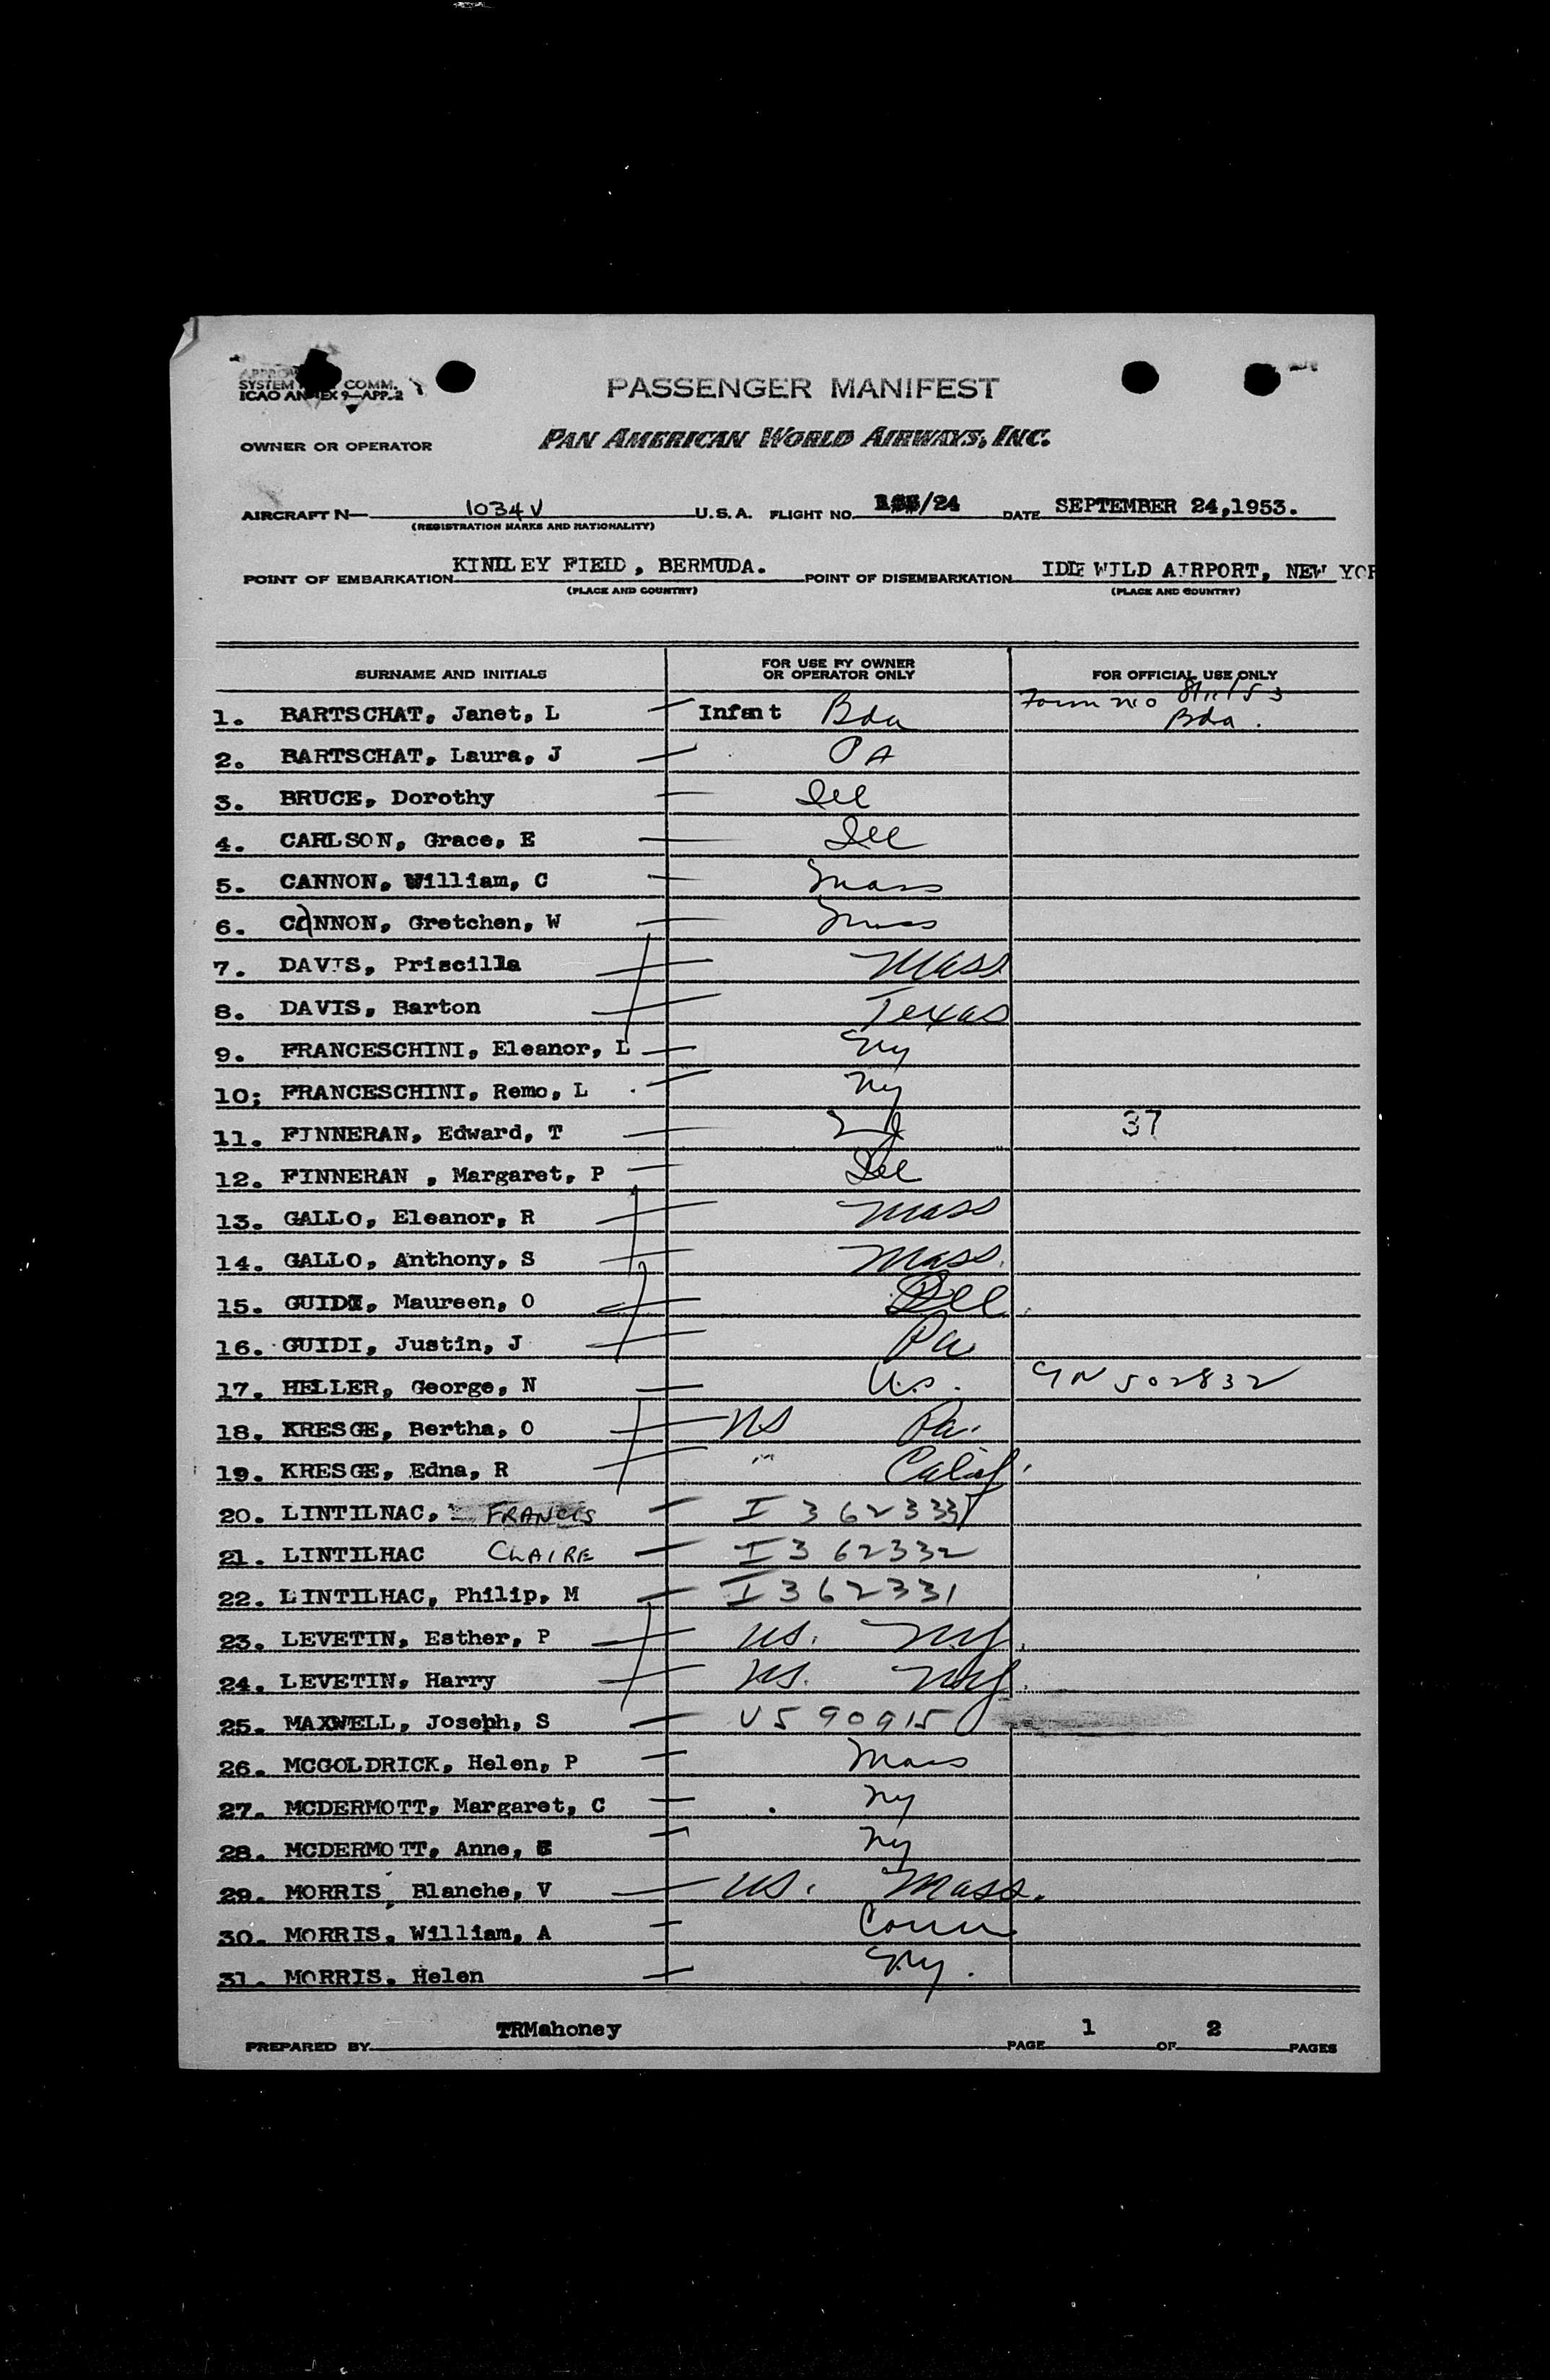 SYSTEM COMM.
ICAO ANNEX 9—APP. 2
PASSENGER MANIFEST
OWNER OR OPERATOR PAN AMERICAN WORLD AIRWAYS, INC.
AIRCRAFT N— 1034V U.S.A. FLIGHT NO. /24 DATE SEPTEMBER 24,1953.
(REGISTRATION MARKS AND NATIONALITY)
POINT OF EMBARKATION KINDLEY FIELD, BERMUDA. POINT OF DISEMBARKATION IDLEWILD AIRPORT, NEW YOR
(PLACE AND COUNTRY) (PLACE AND COUNTRY)
SURNAME AND INITIALS FOR USE BY OWNER OR OPERATOR ONLY FOR OFFICIAL USE ONLY
1. BARTSCHAT, Janet, L Infant Bda Form no 8/11/53 Bda.
2. BARTSCHAT, Laura, J PA
3. BRUCE, Dorothy Ill
4. CARLSON, Grace, E Ill
5. CANNON, William, C Mass
6. CANNON, Gretchen, W Mass
7. DAVIS, Priscilla Mass
8. DAVIS, Barton Texas
9. FRANCESCHINI, Eleanor, L NY
10; FRANCESCHINI, Remo, L NY
11. FINNERAN, Edward, T 37
12. FINNERAN , Margaret, P Ill
13. GALLO, Eleanor, R Mass
14. GALLO, Anthony, S Mass.
15. GUIDI, Maureen, O Ill
16. GUIDI, Justin, J Pa
17. HELLER, George, N U.S. GN 502832
18. KRESGE, Bertha, O US Pa.
19. KRESGE, Edna, R " Calif.
20. LINTILNAC, FRANCIS I 362333
21. LINTILHAC CLAIRE I 362332
22. LINTILHAC, Philip, M I 362331
23. LEVETIN, Esther, P US. NY.
24. LEVETIN, Harry US. NY.
25. MAXWELL, Joseph, S V590915
26. MCGOLDRICK, Helen, P Mass
27. MCDERMOTT, Margaret, C NY
28. MCDERMOTT, Anne, NY
29. MORRIS, Blanche, V US. Mass.
30. MORRIS, William, A Conn
31. MORRIS, Helen NY.
PREPARED BY TRMahoney PAGE 1 OF 2 PAGES